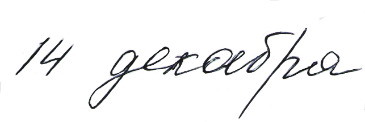 14 декабря